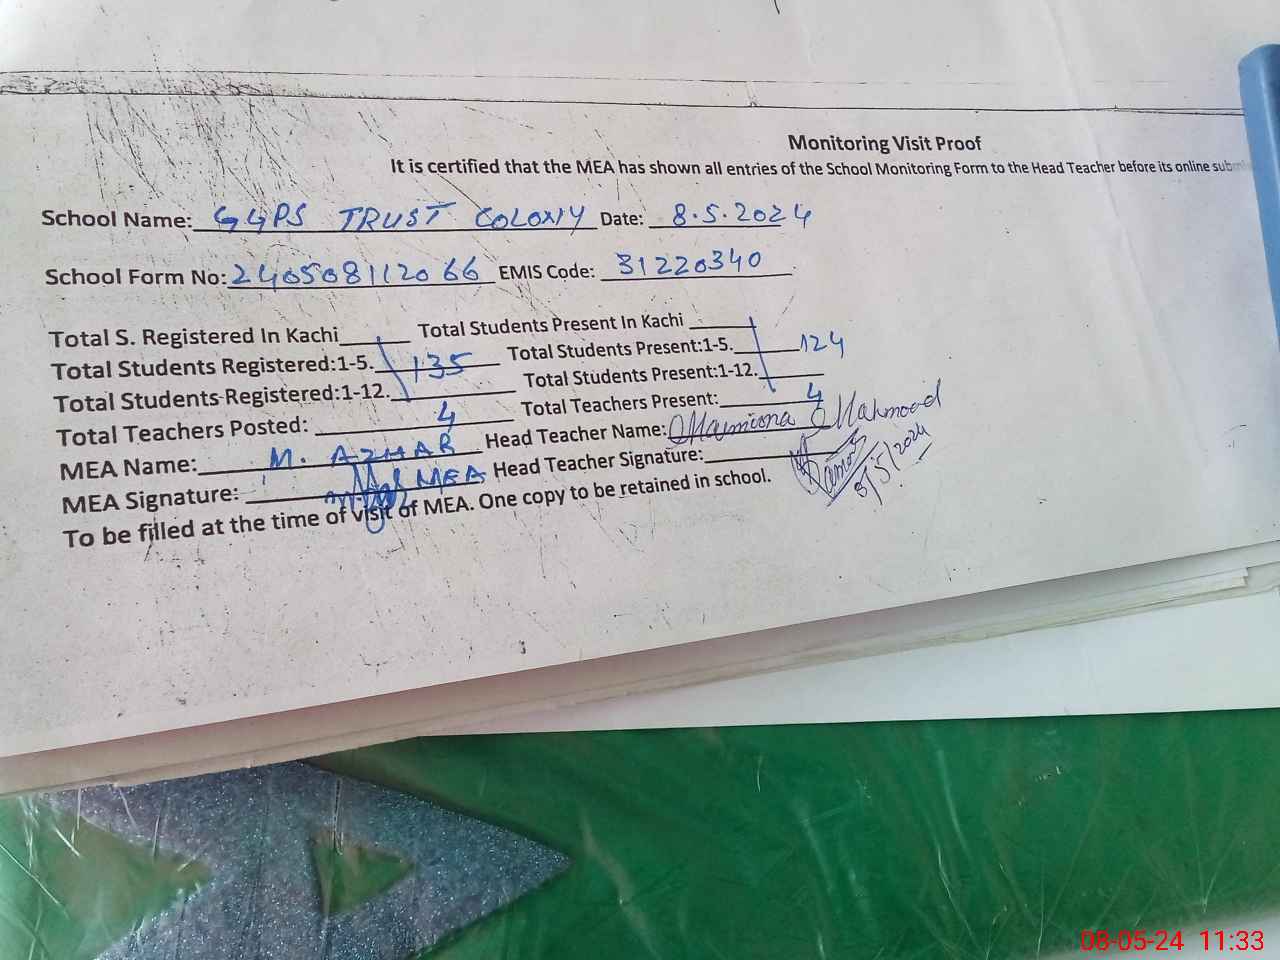 Monitoring Visit Proof
It is certified that the MEA has shown all entries of the School Monitoring Form to the Head Teacher before its online
School Name: GGPS TRUST COLONY Date: 8.5.2024
School Form No: 240508112066 EMIS Code: 31220340
Total S. Registered In Kachi Total Students Present In Kachi
Total Students Registered:1-5. 135 Total Students Present:1-5. 124
Total Students Registered:1-12. Total Students Present:1-12.
Total Teachers Posted: 4 Total Teachers Present: 4
MEA Name: M. AZHAR Head Teacher Name: Maimoona Mahmood
MEA Signature: MEA Head Teacher Signature:
8/5/2024
To be filled at the time of visit of MEA. One copy to be retained in school.
08-05-24 11:33